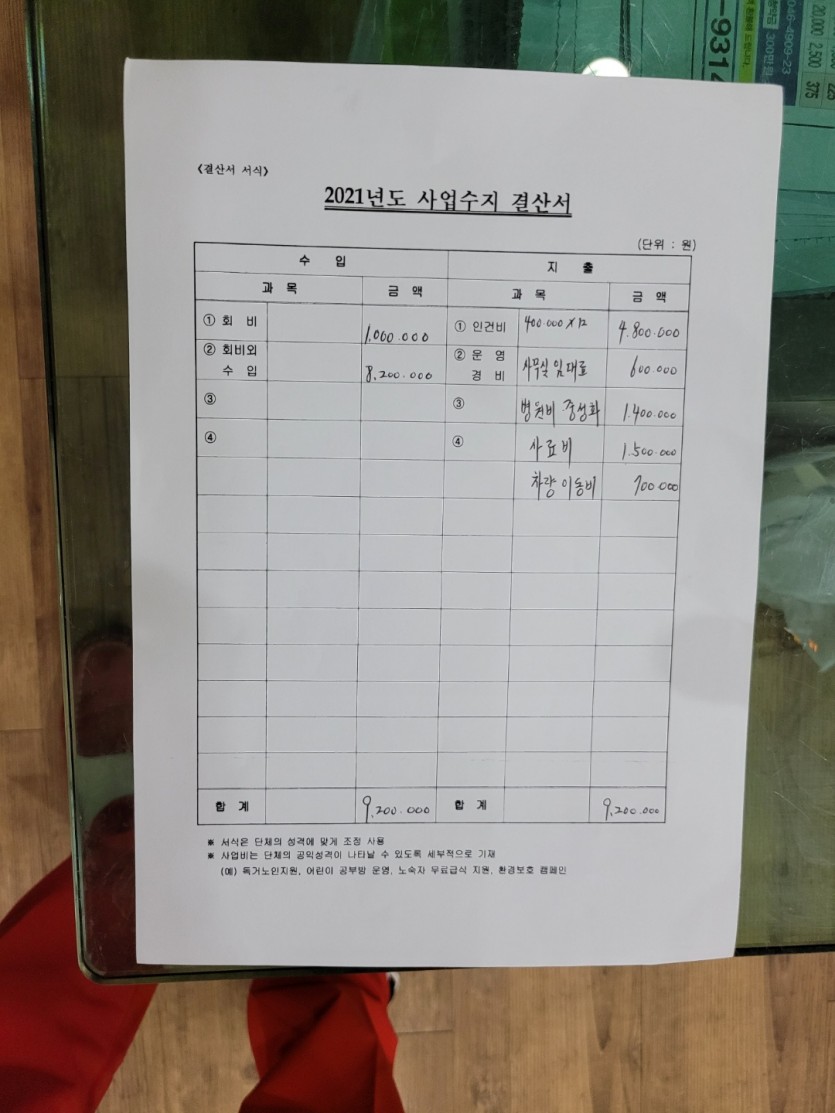 046-4909-23
300만원
20,000 2,500
375
-9314
<결산서 서식>
2021년도 사업수지 결산서
(단위 : 원)
수 입 지 출
과 목 금 액 과 목 금 액
① 회 비 1,000.000 ① 인건비 400.000 X 12 4.800.000
② 회비외 수 입 8,200.000 ② 운 영 경 비 사무실 임대료 600.000
③ ③ 병원비 중성화 1.400.000
④ ④ 사료비 1.500.000
차량 이동비 700.000
합 계 9,200.000 합 계 9,200.000
※ 서식은 단체의 성격에 맞게 조정 사용
※ 사업비는 단체의 공익성격이 나타날 수 있도록 세부적으로 기재
(예) 독거노인지원, 어린이 공부방 운영, 노숙자 무료급식 지원, 환경보호 캠페인